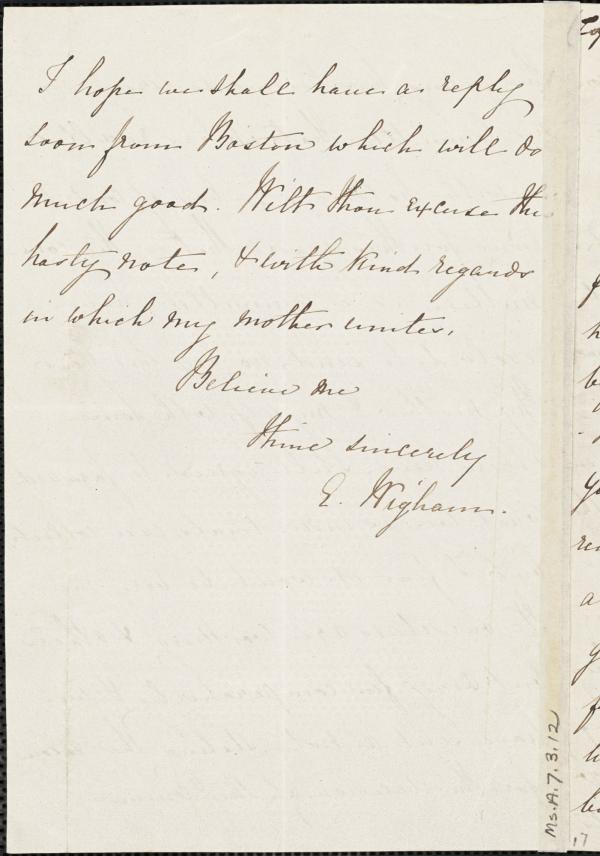 I hope we shall have a reply
soon from Boston which will do
much good. Wilt thou excuse this
hasty note, & with kind regards
in which my mother unites,
Believe me
thine sincerely
E. Wigham.
Ms.A.7.3.12